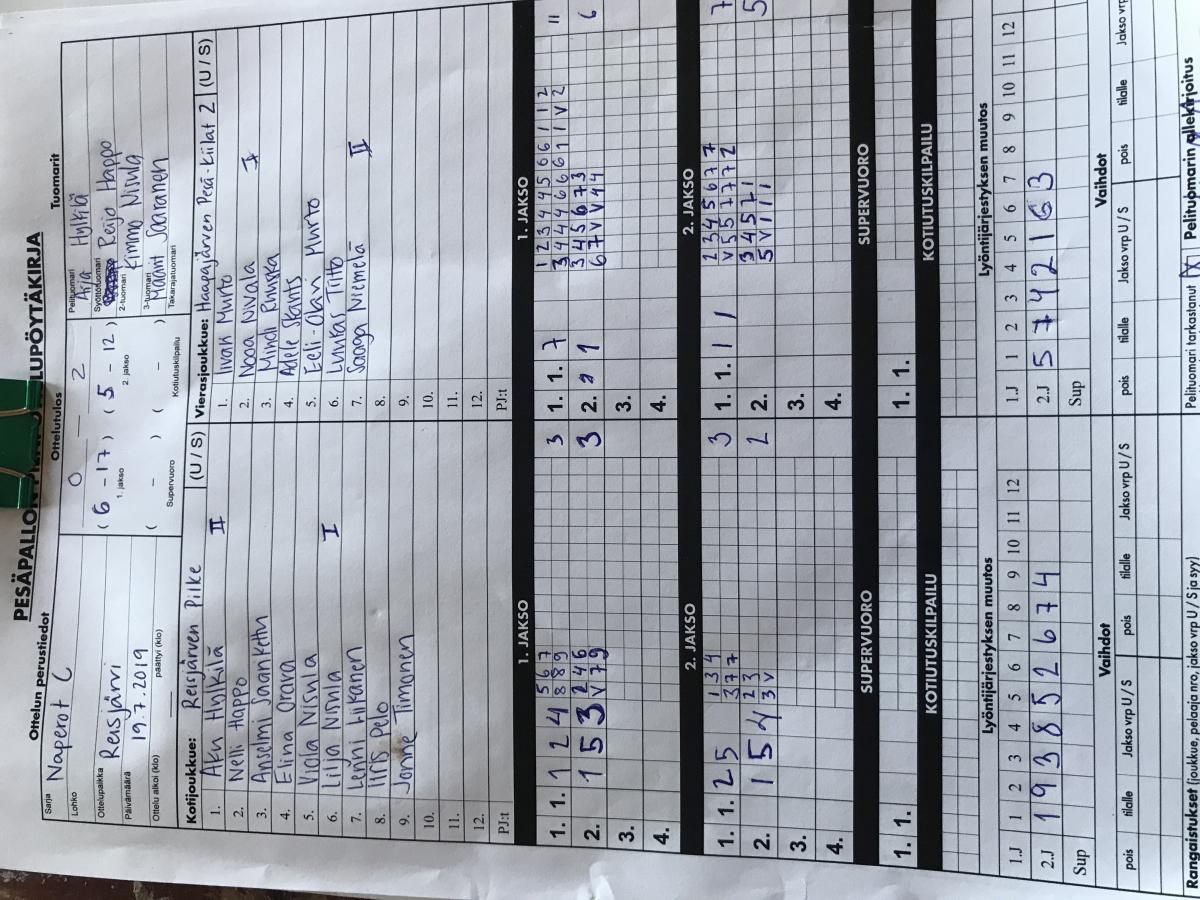 PESÄPALLON
LUPÖYTÄKIRJA
Ottelun perustiedot
Sarja
Naperot C
Lohko
Ottelupaikka
Reisjärvi
Päivämäärä
19.7.2019
Ottelu alkoi (klo)
päättyi (klo)
Ottelutulos
0 - 2
( 6 - 17 ) ( 5 - 12 )
1. jakso
2. jakso
( - ) ( - )
Supervuoro
Kotiutuskilpailu
Tuomarit
Pelituomari
Arja Hylkilä
Syöttötuomari
Reijo Happo
2-tuomari
Kimmo Nisula
3-tuomari
Maarit Saaranen
Takarajatuomari
Kotijoukkue: Reisjärven Pilke (U / S)
1. Aku Hylkilä II
2. Nelli Happo
3. Anselmi Saarikettu
4. Elina Orava
5. Viola Nisula
6. Lilja Nisula I
7. Lenni Liikanen
8. Iiris Pelo
9. Jonne Timonen
10.
11.
12.
PJ:t
Vierasjoukkue: Haapajärven Pesä-Kiilat 2 (U / S)
1. Iivari Murto
2. Nooa Nivala I
3. Mindi
4. Adele
5. Eeli-Okari Murto
6. Luukas Tiitto
7. Saaga Niemelä II
8.
9.
10.
11.
12.
PJ:t
1. JAKSO
1. 1. 1 2 4 5 6 7 3
8 8 9
2. 1 5 3 2 4 6 3
V 7 9
3.
4.
1. JAKSO
1. 1. 7 1 2 3 4 4 5 6 6 1 1 2 11
3 4 4 4 6 6 6 1 1 V 2
2. 2 1 3 4 5 6 7 3 6
6 7 V V 4 4
3.
4.
2. JAKSO
1. 1. 2 5 1 3 4 3
3 7 7
2. 1 5 4 2 3 2
3 V
3.
4.
2. JAKSO
1. 1. 1 1 2 3 4 5 6 7 7 7
V 5 5 7 7 7 2
2. 3 4 5 7 1 5
5 V 1 1 1
3.
4.
SUPERVUORO
1. 1.
SUPERVUORO
1. 1.
KOTIUTUSKILPAILU
KOTIUTUSKILPAILU
Lyöntijärjestyksen muutos
1 2 3 4 5 6 7 8 9 10 11 12
1.J
2.J 1 9 3 8 5 2 6 7 4
Sup
Lyöntijärjestyksen muutos
1 2 3 4 5 6 7 8 9 10 11 12
1.J
2.J 5 7 4 2 1 6 3
Sup
Vaihdot
pois tilalle Jakso vrp U / S pois tilalle Jakso vrp U / S
Vaihdot
pois tilalle Jakso vrp U / S pois tilalle Jakso vrp
Rangaistukset (joukkue, pelaaja nro, jakso vrp U / S ja syy)
Pelituomari tarkastanut X Pelituomarin allekirjoitus